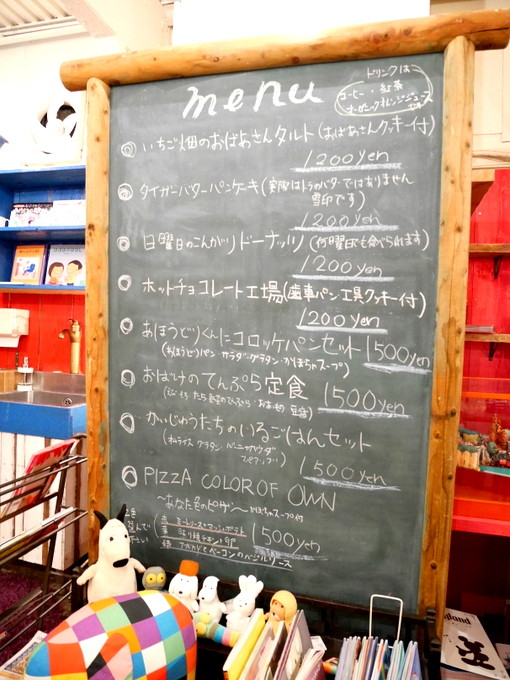 menu
ドリンクは
コーヒー・紅茶
オーガニックオレンジジュース
です
いちご畑のおばあさんタルト(おばあさんクッキー付)
1200yen
タイガーバターパンケーキ(実際はトラのバターではありません
雪印です)
1200yen
日曜日のこんがりドーナッツ(何曜日でも食べられます)
1200yen
ホットチョコレート工場(歯車パン工具クッキー付)
1200yen
あほうどりくんにコロッケパンセット 1500yen
(あほうどりパン サラダ グラタン かぼちゃスープ)
おばけのてんぷら定食
1500yen
かいじゅうたちのいるごはんセット
1500yen
PIZZA COLOR OF OWN
〜あなた色のピザ〜 かぼちゃスープ付
赤 ミートソースとマッシュポテト
黄 照り焼チキンと卵
緑 アボカドとベーコンのバジルソース
1500yen